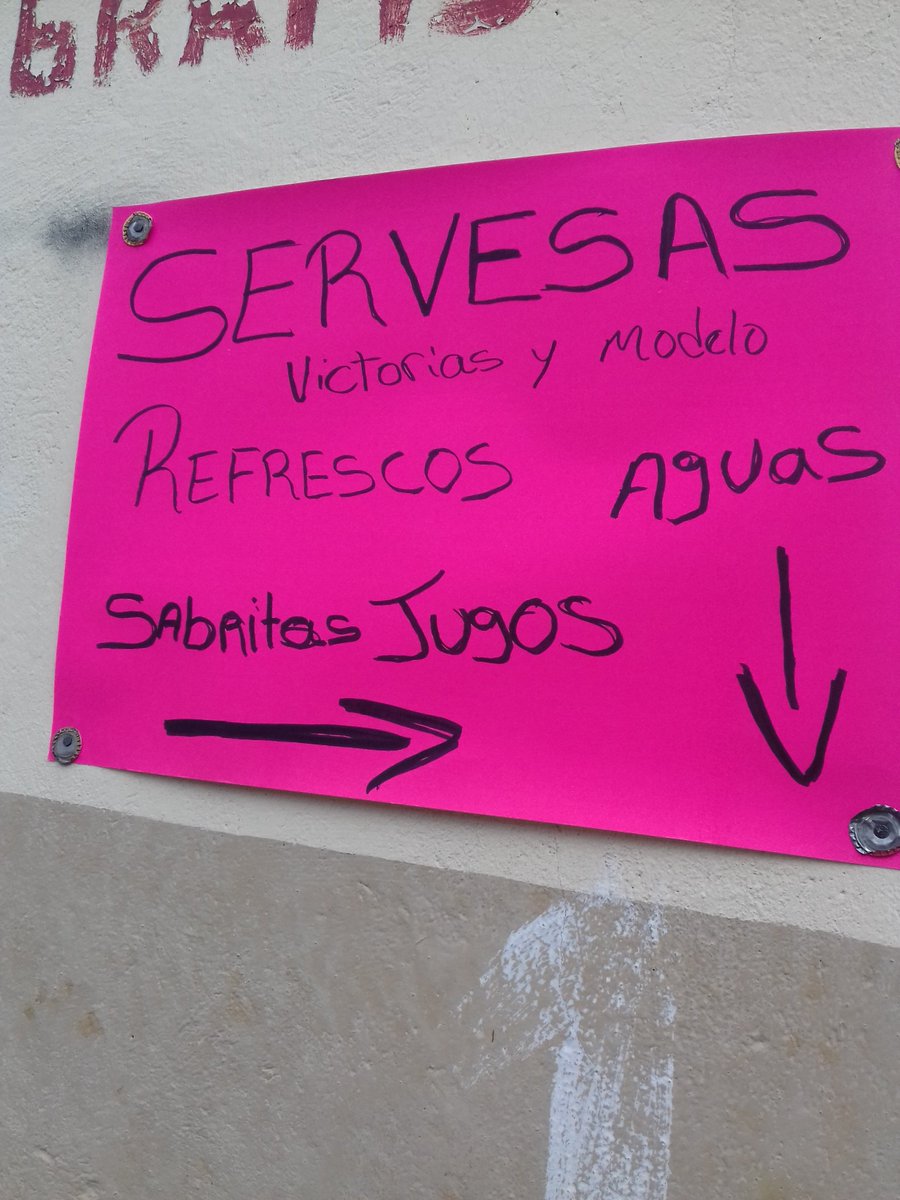 GRATIS
SERVESAS
Victorias y Modelo
REFRESCOS AguaS
SAbRitas JugOS